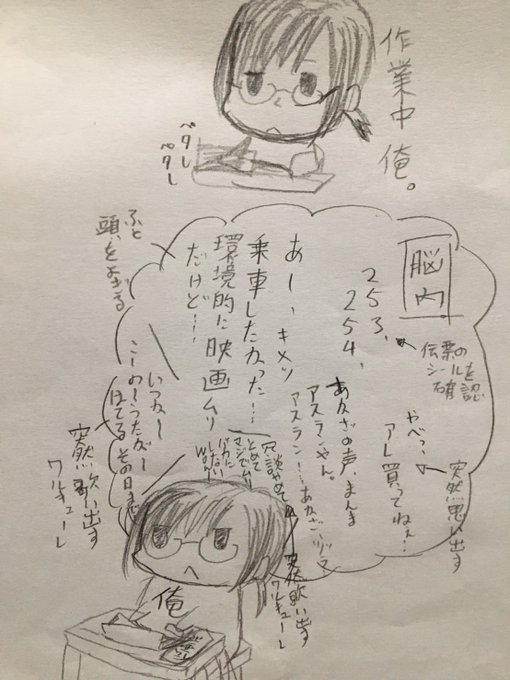 作業中 俺。
ペタし
ペタし
脳内
253、
254、
伝票の
シールを
確認
やべっ…
アレ買ってねぇ…
突然思い出す
あかざの声、まんま
アスランやん。
アスラン!…あかざ…ジュ
あー、キメツ
乗車したかった…
環境的に映画ムリ
だけど…
ふと
頭をよぎる
いつか
こーのーうたがー
その日まで
突然歌い出す
ワルキューレ
冗談やめて
とめて
マジでムリ
バカに
しない
突然歌い出す
ワルキューレ
俺